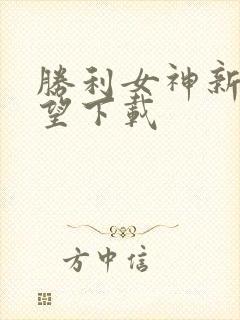 勝利女神新
望下載
方中信